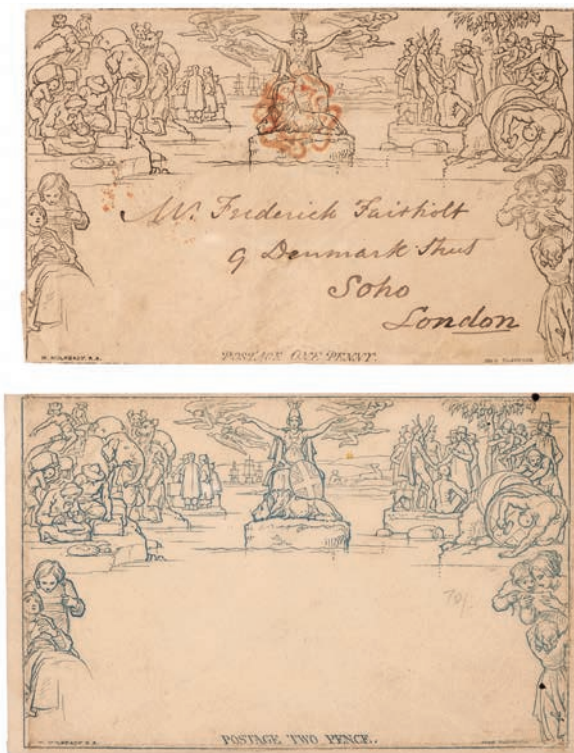 Mr. Frederick Fairholt
9 Denmark Street
Soho
London
W. MULREADY, R.A.
POSTAGE ONE PENNY.
70/-
W. MULREADY, R.A.
POSTAGE TWO PENCE.